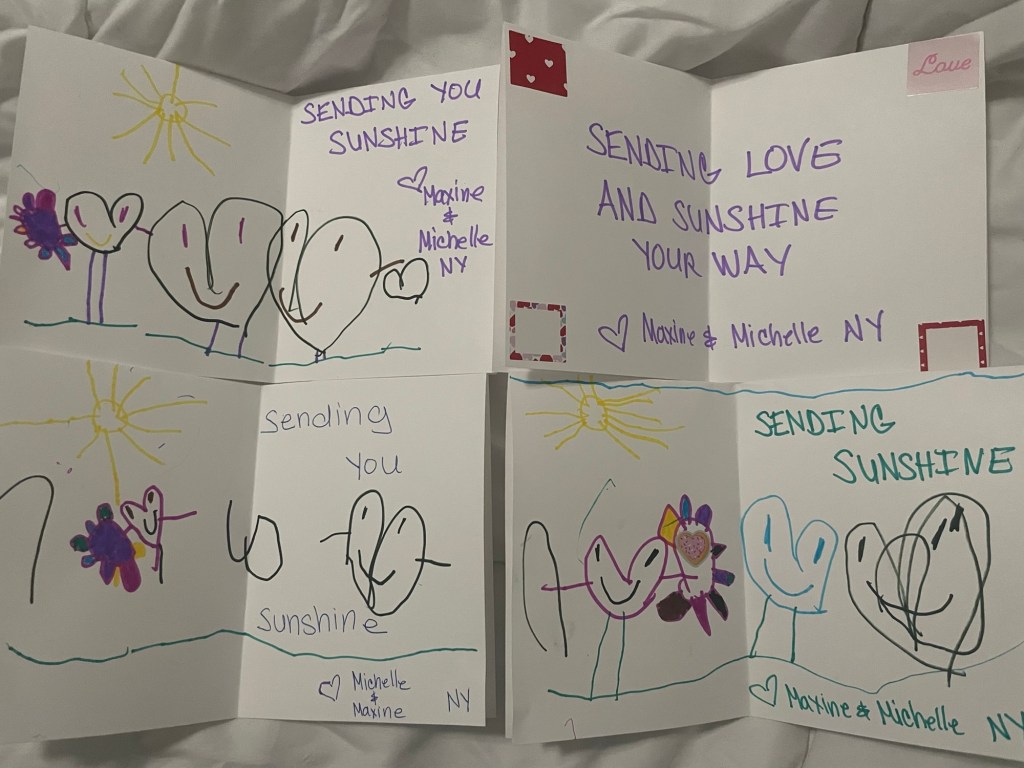 SENDING YOU
SUNSHINE
♡Maxine
&
Michelle
NY
Love
SENDING LOVE
AND SUNSHINE
YOUR WAY
♡ Maxine & Michelle NY
Sending
you
Sunshine
♡ Michelle
&
Maxine
NY
SENDING
SUNSHINE
♡ Maxine & Michelle NY